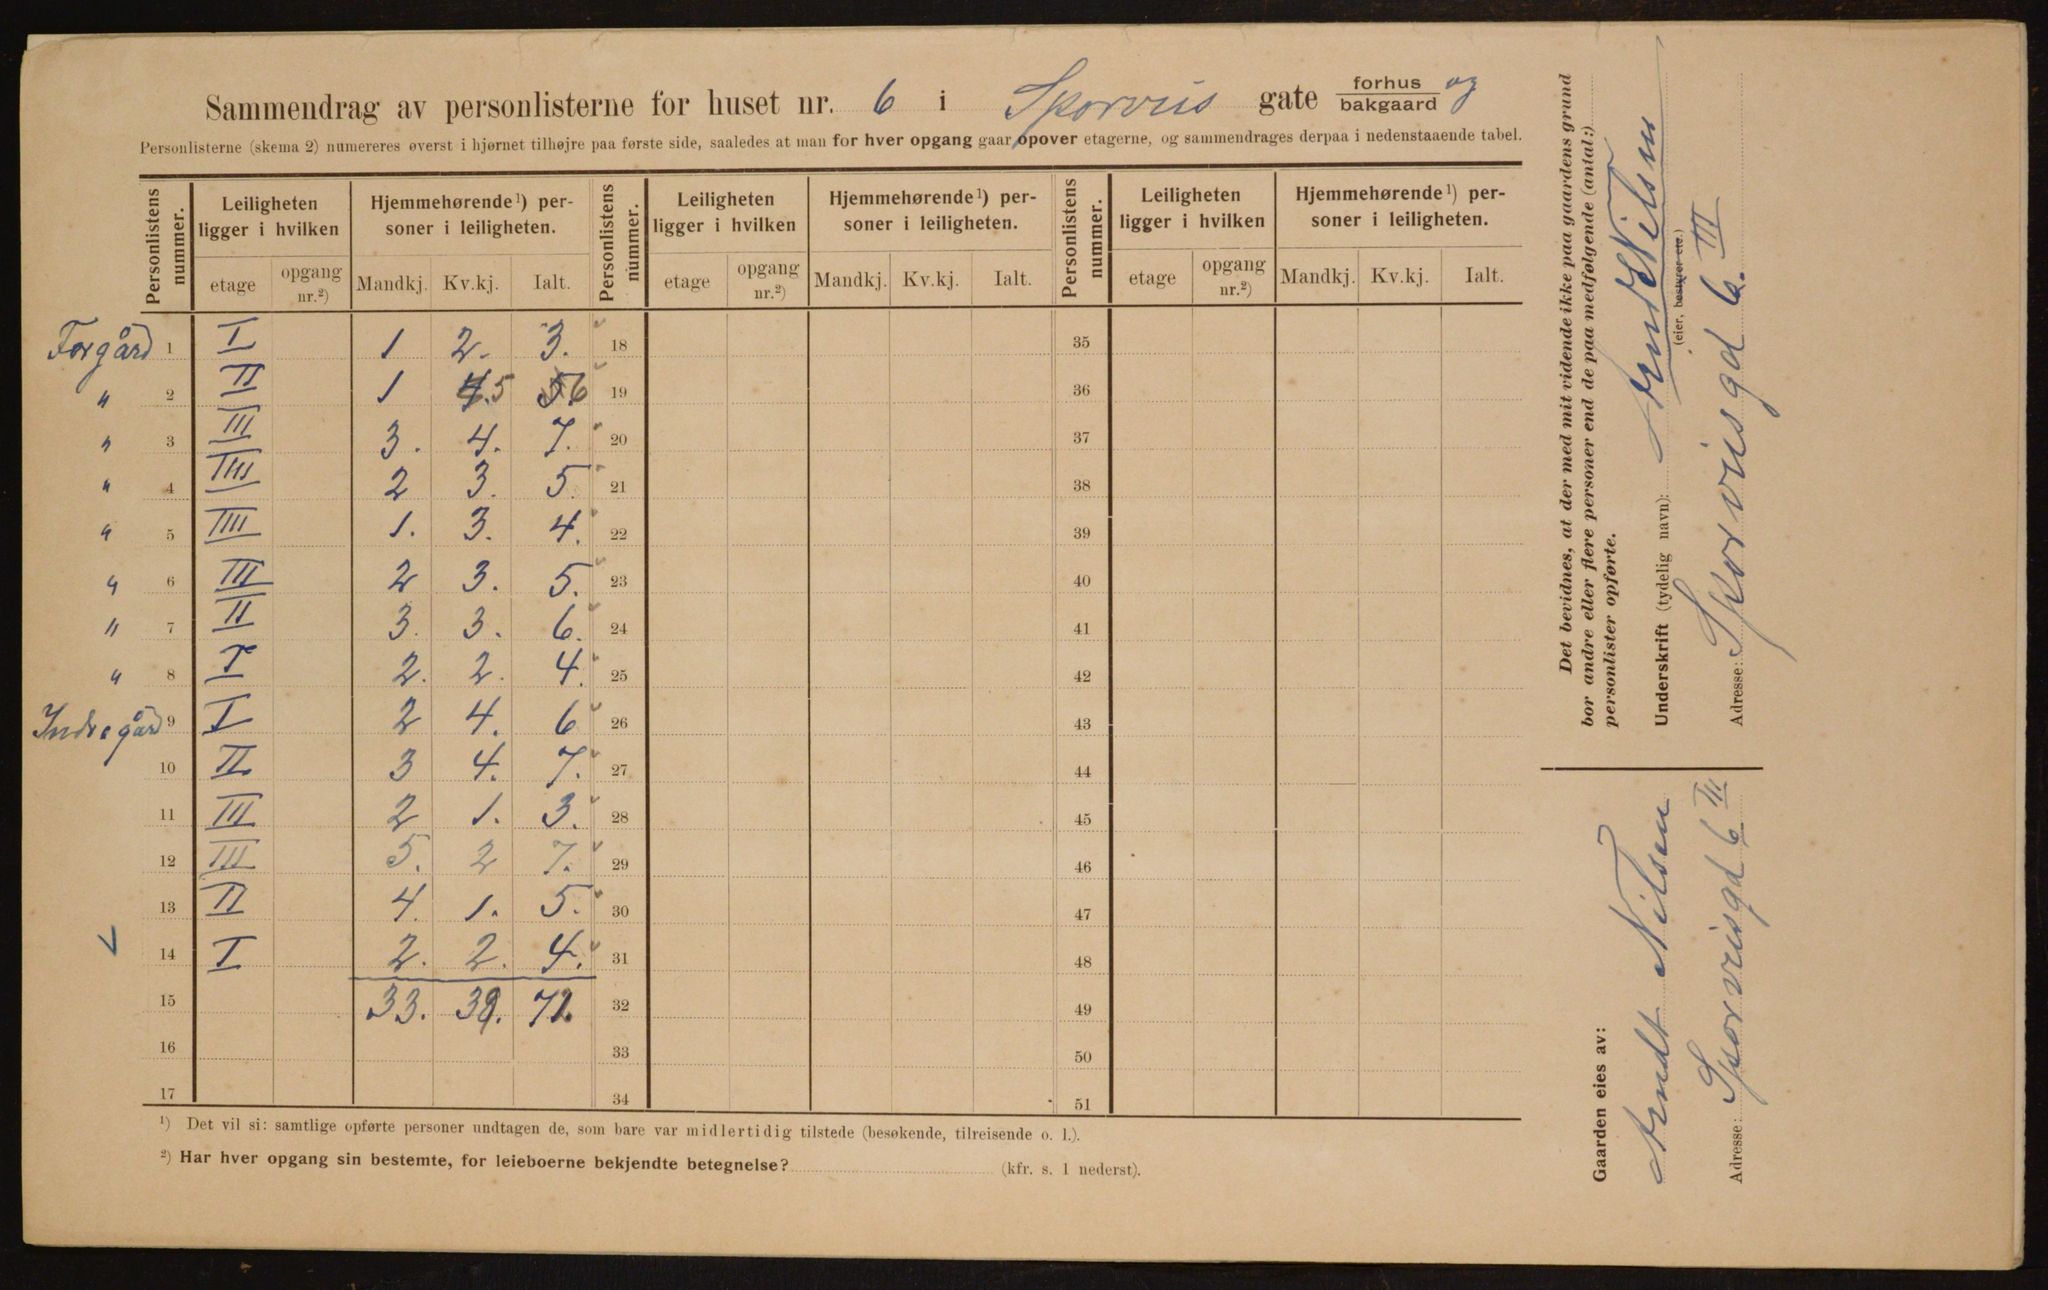 Sammendrag av personlisterne for huset nr. 6 i Sporveis gate forhus og bakgaard
Personlisterne (skema 2) numereres øverst i hjørnet tilhøjre paa første side, saaledes at man for hver opgang gaar opover etagerne, og sammendrages derpaa i nedenstaaende tabel.
Personlistens nummer. Leiligheten ligger i hvilken Hjemmehørende ¹) personer i leiligheten. Personlistens nummer. Leiligheten ligger i hvilken Hjemmehørende ¹) personer i leiligheten. Personlistens nummer. Leiligheten ligger i hvilken Hjemmehørende ¹) personer i leiligheten.
etage opgang nr.²) Mandkj. Kv.kj. Ialt. etage opgang nr.²) Mandkj. Kv.kj. Ialt. etage opgang nr.²) Mandkj. Kv.kj. Ialt.
Forgård 1 I 1 2. 3. 18 35
" 2 II 1 4.5 56 19 36
" 3 III 3. 4. 7. 20 37
" 4 IIII 2 3. 5. 21 38
" 5 IIII 1. 3. 4. 22 39
" 6 III 2 3. 5. 23 40
" 7 II 3. 3. 6. 24 41
" 8 I 2. 2. 4. 25 42
Indregård 9 I 2 4. 6 26 43
10 II 3 4. 7. 27 44
11 III 2 1. 3. 28 45
12 III 5. 2 7. 29 46
13 II 4. 1. 5. 30 47
14 I 2. 2. 4. 31 48
15 33. 39. 72. 32 49
16 33 50
17 34 51
¹) Det vil si: samtlige opførte personer undtagen de, som bare var midlertidig tilstede (besøkende, tilreisende o. l.).
²) Har hver opgang sin bestemte, for leieboerne bekjendte betegnelse? (kfr. s. 1 nederst).
Det bevidnes, at der med mit vidende ikke paa gaardens grund
bor andre eller flere personer end de paa medfølgende (antal:)
personlister opførte.
Underskrift (tydelig navn): Arndt Nilsen
(eier, bestyrer etc.)
Adresse: Sporveisgd 6. III
Gaarden eies av:
Arndt Nilsen
Adresse: Sporveisgd 6 III